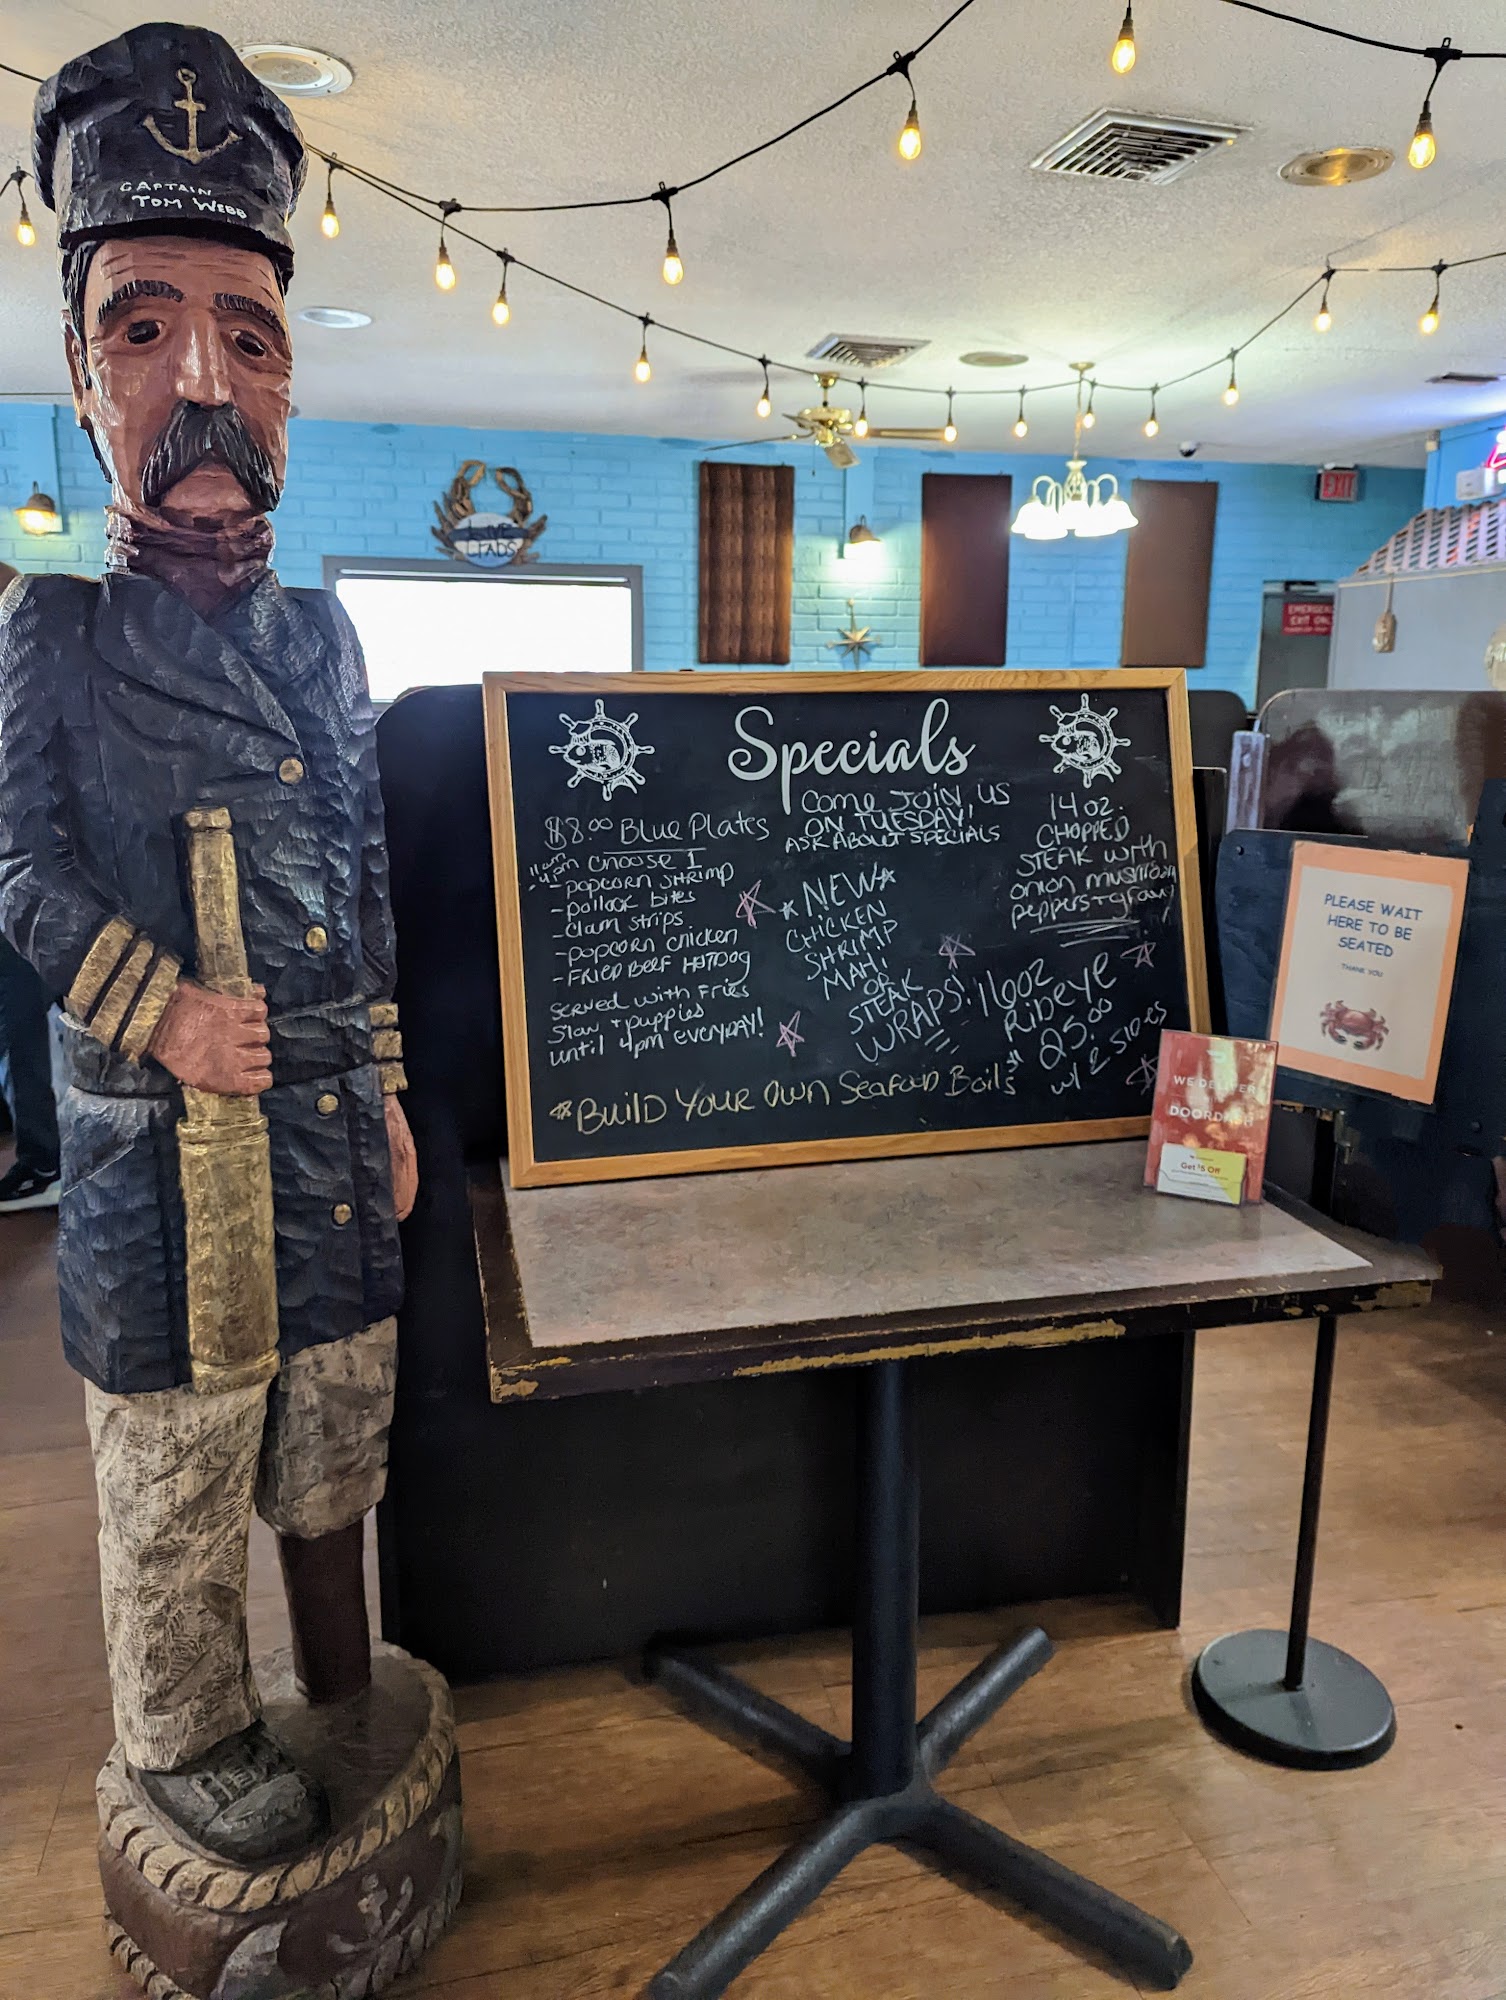 CAPTAIN
TOM WEBB
LIVE
CRABS
EXIT
EMERGENCY
EXIT ONLY
Specials
$8.00 Blue Plates
11am
-4pm choose 1
- popcorn shrimp
- pollock bites
- clam strips
- popcorn chicken
- FRIED BEEF HOTDOG
Served with Fries
Slaw + puppies
until 4pm everyday!
Come Join us
ON TUESDAY!
ASK ABOUT SPECIALS
NEW
CHICKEN
SHRIMP
MAHI
OR
STEAK
WRAPS!
14 oz.
CHOPPED
STEAK with
onion mushroom
peppers + gravy
16oz
Ribeye
25.00
w/ 2 sides
BUILD YOUR OWN SEAFOOD BOILS
PLEASE WAIT
HERE TO BE
SEATED
THANK YOU
WE DELIVER
DOORDASH
Get $5 Off